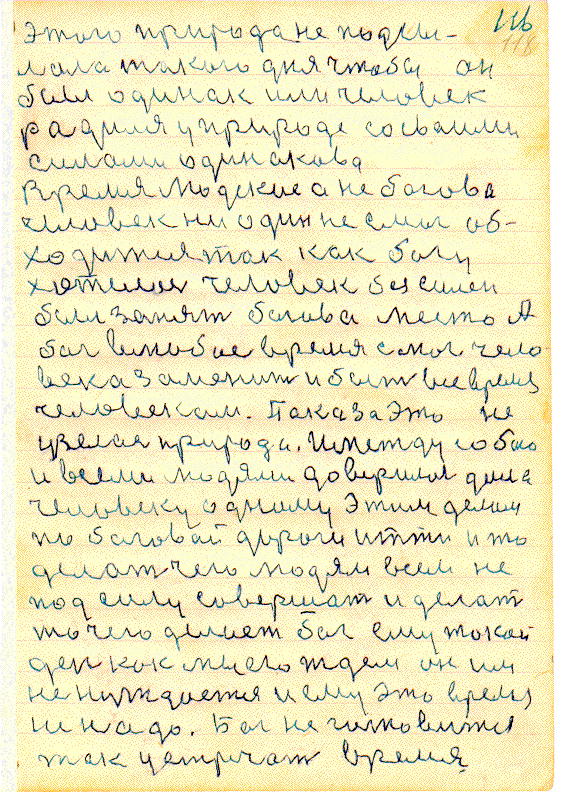 116
116
Этого природа не подни-
мала такого дня чтобы он
был одинак или человек
радился у природе со своими
силами одинакова
Время людские а не богова
человек ни один не смог об-
ходится так как богу
хотелося человек без силен
был занят богова место А
бог в любое время смог чело-
века заменит и быт все время
человекам. Пака за это не
взелас природа. И между собою
и всеми людями доверилас дела
человеку одному этим делам
по боговай дороги итти и то
делат чего людям всем не
под силу совершат и делат
то чего делает бог ему такой
ден как мы его ждем он им
не нуждается и ему это время
не надо. Бог не готовится
так устричат время